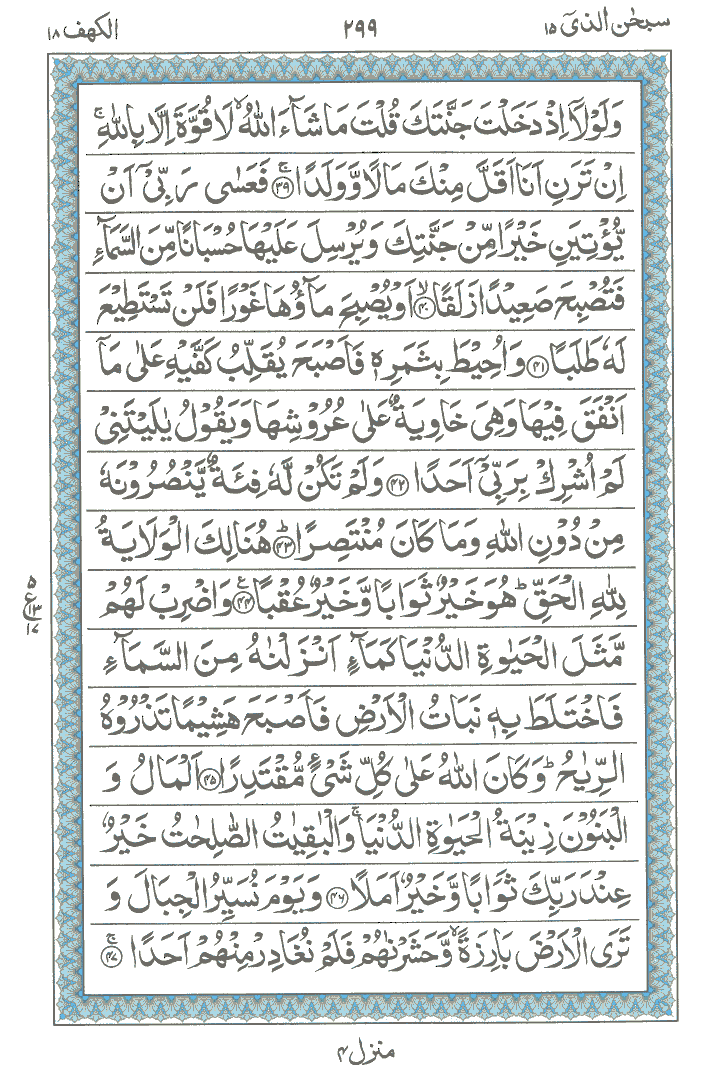 سبحٰن الذیٓ ۱۵
۲۹۹
الکهف ۱۸
وَلَوْلَاۤ اِذْ دَخَلْتَ جَنَّتَكَ قُلْتَ مَا شَآءَ اللّٰهُ ۙ لَا قُوَّةَ اِلَّا بِاللّٰهِ ۚ
اِنْ تَرَنِ اَنَا اَقَلَّ مِنْكَ مَالًا وَّ وَلَدًا ۚ ﴿۳۹﴾ فَعَسٰى رَبِّىْۤ اَنْ
يُّؤْتِيَنِ خَيْرًا مِّنْ جَنَّتِكَ وَ يُرْسِلَ عَلَيْهَا حُسْبَانًا مِّنَ السَّمَآءِ
فَتُصْبِحَ صَعِيْدًا زَلَقًا ۙ ﴿۴۰﴾ اَوْ يُصْبِحَ مَآؤُهَا غَوْرًا فَلَنْ تَسْتَطِيْعَ
لَهٗ طَلَبًا ﴿۴۱﴾ وَ اُحِيْطَ بِثَمَرِهٖ فَاَصْبَحَ يُقَلِّبُ كَفَّيْهِ عَلٰى مَاۤ
اَنْفَقَ فِيْهَا وَهِىَ خَاوِيَةٌ عَلٰى عُرُوْشِهَا وَ يَقُوْلُ يٰلَيْتَنِىْ
لَمْ اُشْرِكْ بِرَبِّىْۤ اَحَدًا ﴿۴۲﴾ وَلَمْ تَكُنْ لَّهٗ فِئَةٌ يَّنْصُرُوْنَهٗ
مِنْ دُوْنِ اللّٰهِ وَمَا كَانَ مُنْتَصِرًا ؕ ﴿۴۳﴾ هُنَالِكَ الْوَلَايَةُ
لِلّٰهِ الْحَقِّ ؕ هُوَ خَيْرٌ ثَوَابًا وَّ خَيْرٌ عُقْبًا ﴿۴۴﴾ وَاضْرِبْ لَهُمْ
۵
ع ۱۳
۱۷
مَّثَلَ الْحَيٰوةِ الدُّنْيَا كَمَآءٍ اَنْزَلْنٰهُ مِنَ السَّمَآءِ
فَاخْتَلَطَ بِهٖ نَبَاتُ الْاَرْضِ فَاَصْبَحَ هَشِيْمًا تَذْرُوْهُ
الرِّيٰحُ ؕ وَكَانَ اللّٰهُ عَلٰى كُلِّ شَىْءٍ مُّقْتَدِرًا ﴿۴۵﴾ اَلْمَالُ وَ
الْبَنُوْنَ زِيْنَةُ الْحَيٰوةِ الدُّنْيَا ۚ وَالْبٰقِيٰتُ الصّٰلِحٰتُ خَيْرٌ
عِنْدَ رَبِّكَ ثَوَابًا وَّ خَيْرٌ اَمَلًا ﴿۴۶﴾ وَ يَوْمَ نُسَيِّرُ الْجِبَالَ وَ
تَرَى الْاَرْضَ بَارِزَةً ۙ وَّ حَشَرْنٰهُمْ فَلَمْ نُغَادِرْ مِنْهُمْ اَحَدًا ۚ ﴿۴۷﴾
منزل ۴